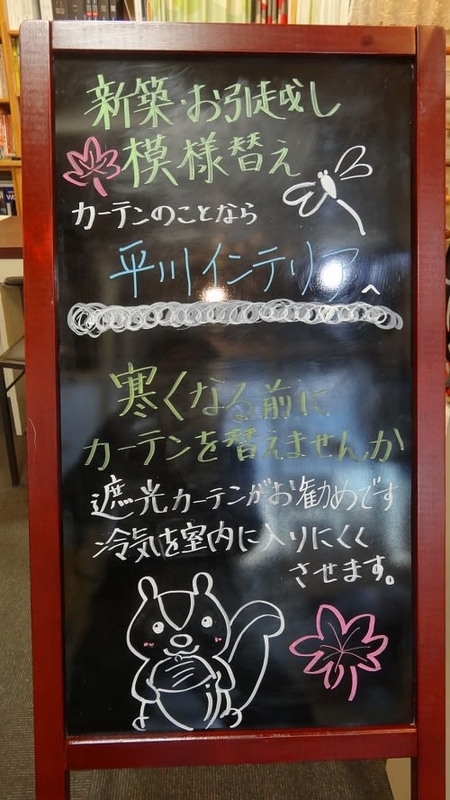 新築・お引越し
模様替え
カーテンのことなら
平川インテリアへ
寒くなる前に
カーテンを替えませんか
遮光カーテンがお勧めです
冷気を室内に入りにくく
させます。